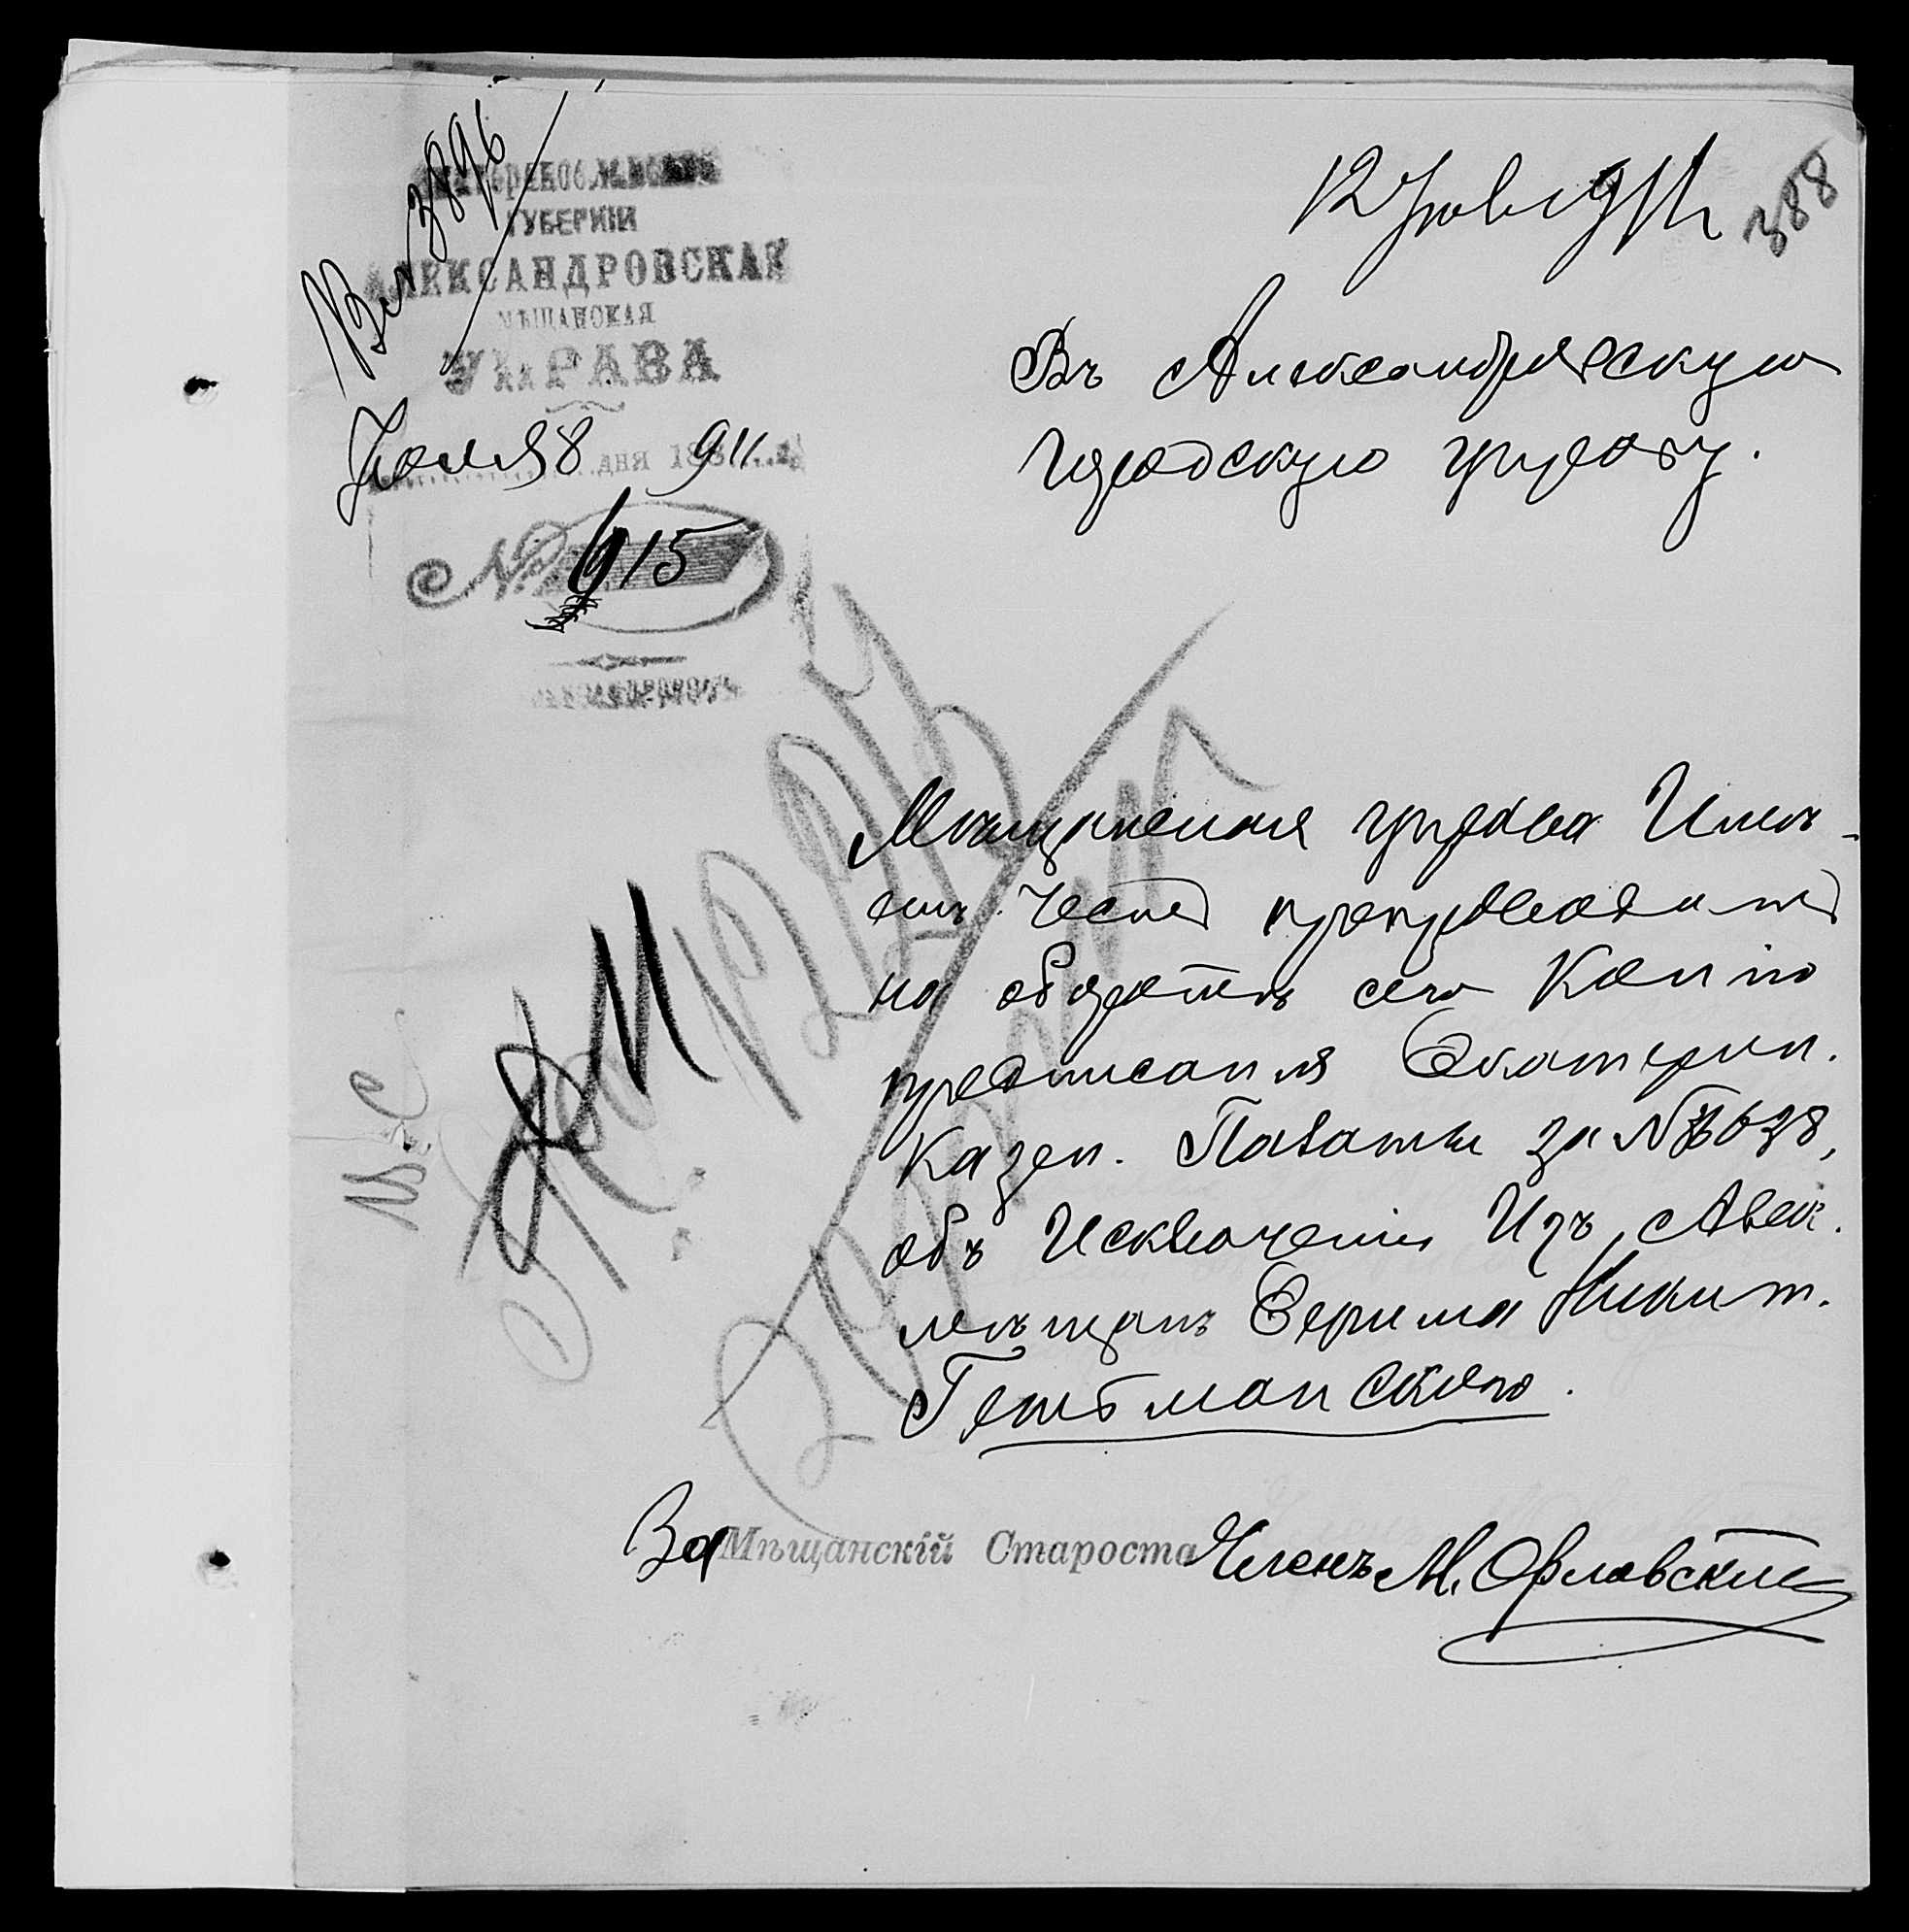 Вх 3896
ГУБЕРНІИ
АЛЕКСАНДРОВСКАЯ
МѢЩАНСКАЯ
УПРАВА
Іюля 8 дня 911
№ 615
12 Іюля 911
388
Въ Александровскую
Городскую управу.
Мѣщанская управа Имѣ-
етъ Честь препроводить
на оборотѣ сего Копію
предписанія Екатерин.
Казен. Палаты за №
объ Исключеніи Изъ Алек.
мѣщанъ Никит.
Гетьманскаго.
За Мѣщанскій Староста Членъ М. Орловскій